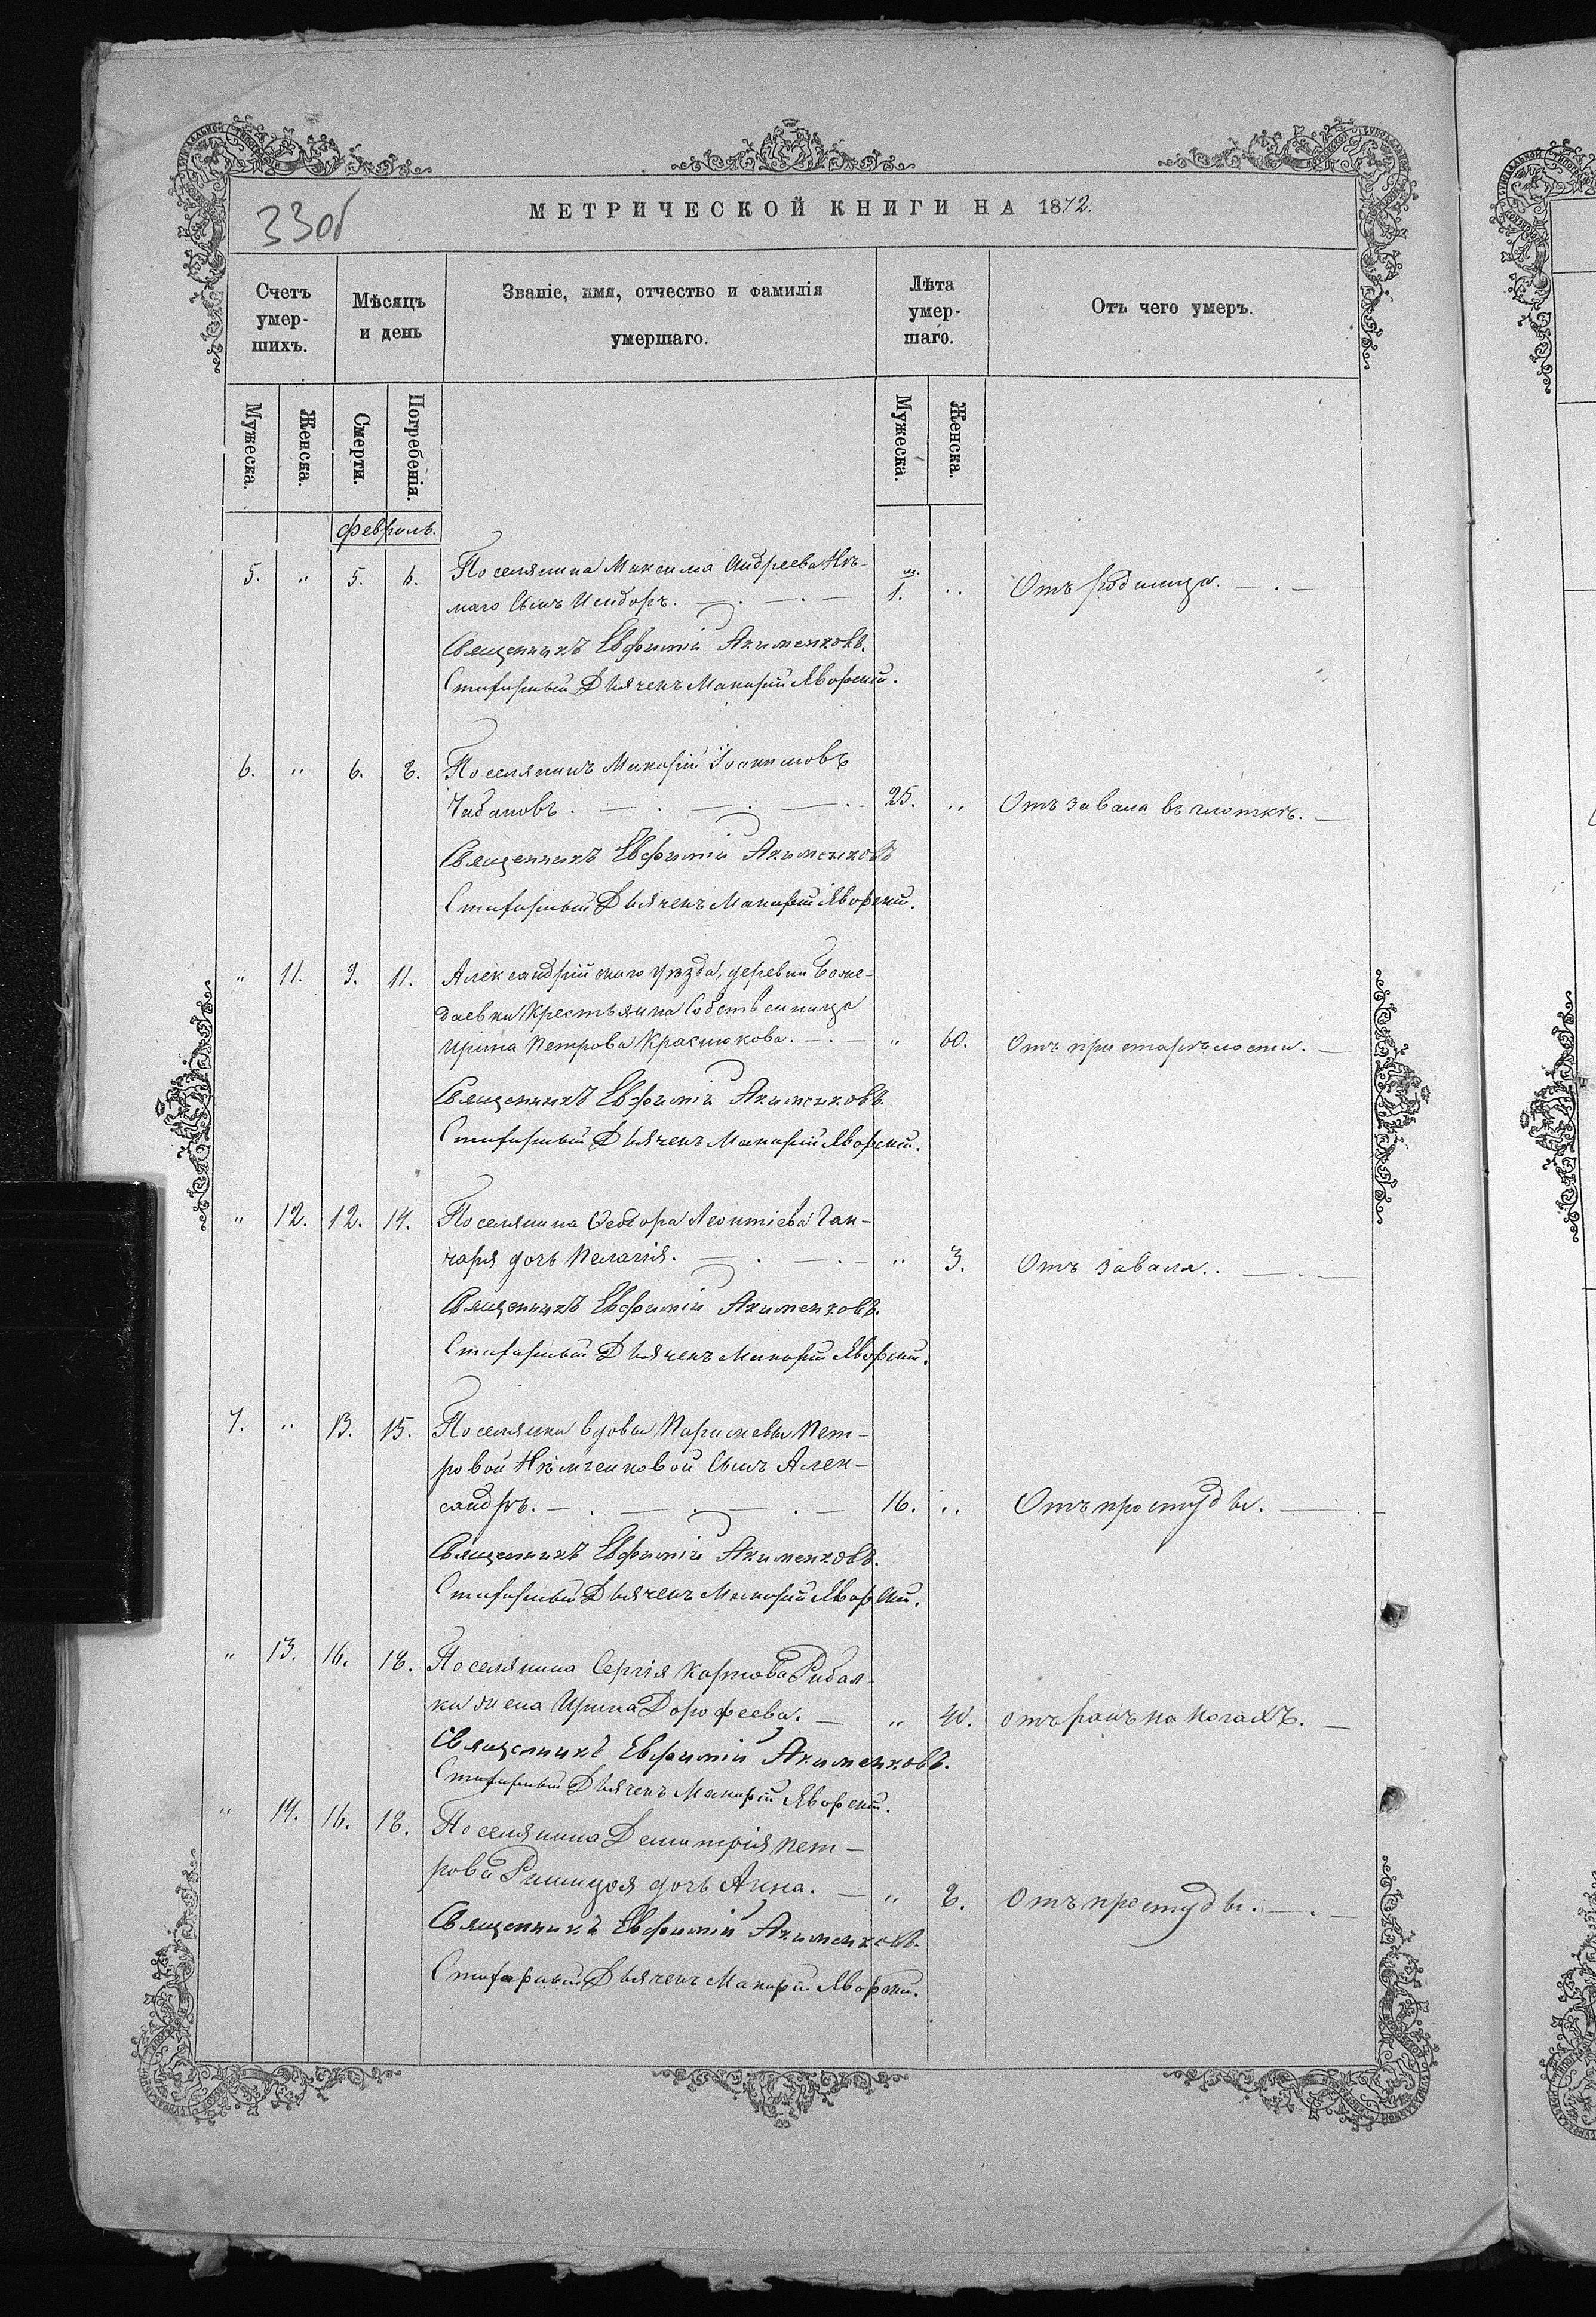 33об
МЕТРИЧЕСКОЙ КНИГИ НА 1872.
Счетъ умер- шихъ.
Мѣсяцъ и день
Званіе, имя, отчество и фамилія умершаго.
Лѣта умер- шаго.
Отъ чего умеръ.
Мужеска. Женска. Смерти. Погребенія. Мужеска. Женска.
февраль.
5. " 5. 6. Поселянина Максима Андреева Нѣ-
маго сынъ Исидоръ. м. 1. " Отъ родимца.
Священникъ Евфимій Акименковъ.
Стихарный Дьячекъ Макарій Яворскій.
6. " 6. 8. Поселянинъ Макарій Іоакимовъ
Чабановъ. 25. " Отъ завала въ глоткѣ.
Священникъ Евфимій Акименковъ
Стихарный Дьячекъ Макарій Яворскій.
" 11. 9. 11. Александрійскаго уѣзда, деревни Боже-
даевки Крестьянка Собственница
Ирина Петрова Краснюкова. " 60. Отъ пристарѣлости.
Священникъ Евфимій Акименковъ.
Стихарный Дьячекъ Макарій Яворскій.
" 12. 12. 14. Поселянина Ѳеодора Леонтіева Ган-
чаря дочь Пелагія. " 3. Отъ завала.
Священникъ Евфимій Акименковъ.
Стихарный Дьячекъ Макарій Яворскій.
7. " 13. 15. Поселянки вдовы Параскевы Пет-
ровой Нѣмченковой сынъ Алек-
сандръ. 16. " Отъ простуды.
Священникъ Евфимій Акименковъ.
Стихарный Дьячекъ Макарій Яворскій.
" 13. 16. 18. Поселянина Сергія Карпова Рибал-
ки жена Ирина Дорофеева. " 40. отъ ранъ на ногахъ.
Священникъ Евфимій Акименковъ.
Стихарный Дьячекъ Макарій Яворскій.
" 14. 16. 18. Поселянина Димитрія Пет-
рова дочь Анна. " 8. Отъ простуды.
Священникъ Евфимій Акименковъ.
Стихарный Дьячекъ Макарій Яворскій.